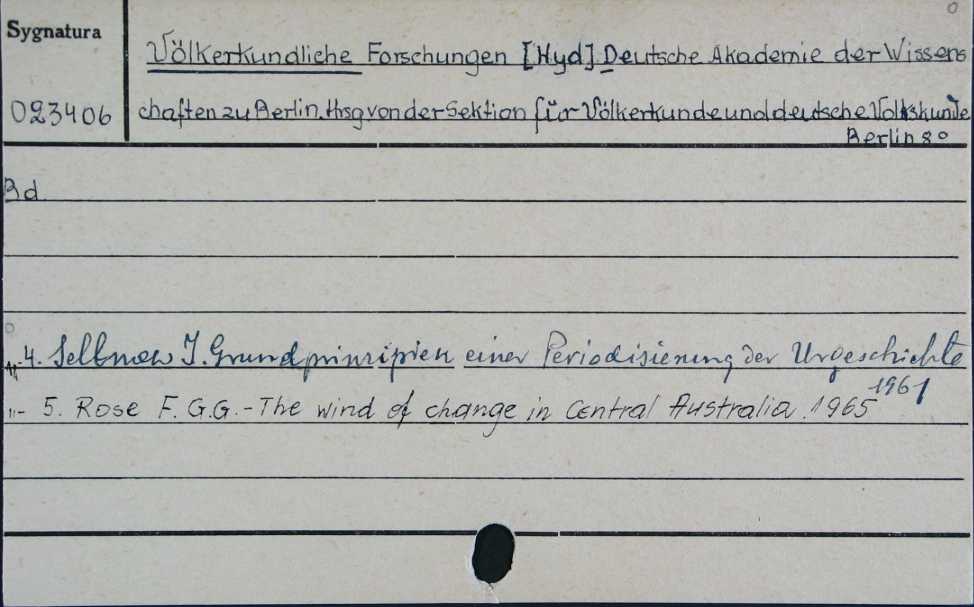 Sygnatura
Völkerkundliche Forschungen [Hyd] Deutsche Akademie der Wissens
023406
chaften zu Berlin. Hrsg von der Sektion für Völkerkunde und deutsche Volkskunde
Berlin 8°
Bd
-4. Sellnow I. Grundprinzipien einer Periodisierung der Urgeschichte
1961
"- 5. Rose F.G.G. - The wind of change in Central Australia. 1965